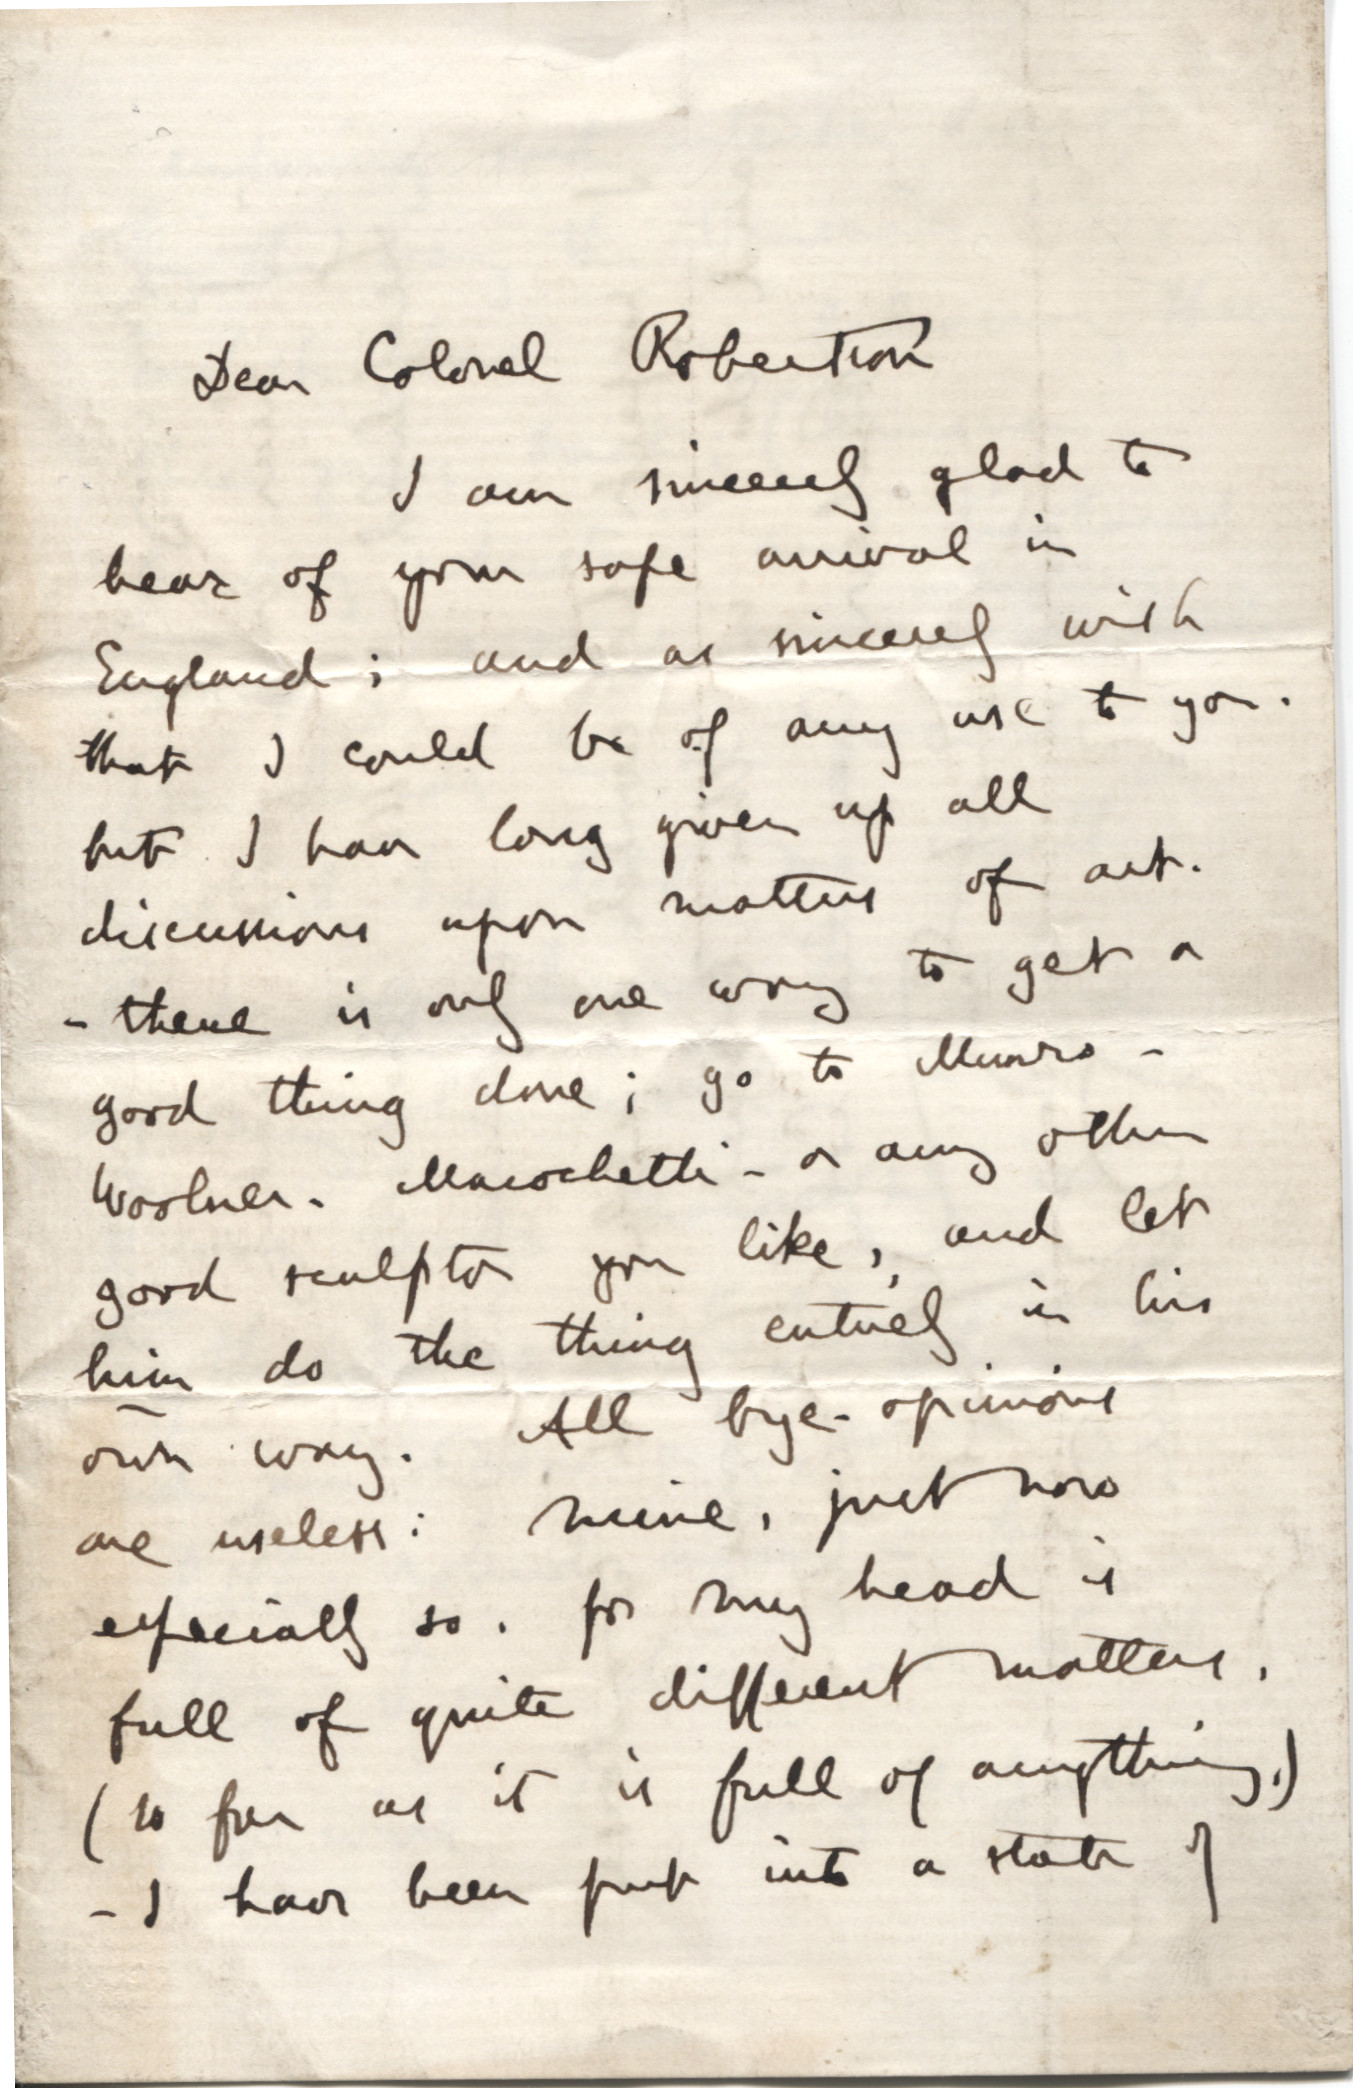 Dear Colonel Robertson
I am sincerely glad to
hear of your safe arrival in
England; and as sincerely wish
that I could be of any use to you.
but I have long given up all
discussions upon matters of art.
- there is only one way to get a
good thing done; go to Munro -
Woolner - Marochetti - or any other
good sculptor you like, and let
him do the thing entirely in his
own way. All bye-opinions
are useless: mine, just now
especially so, for my head is
full of quite different matters,
(so far as it is full of anything,)
- I have been put into a state of